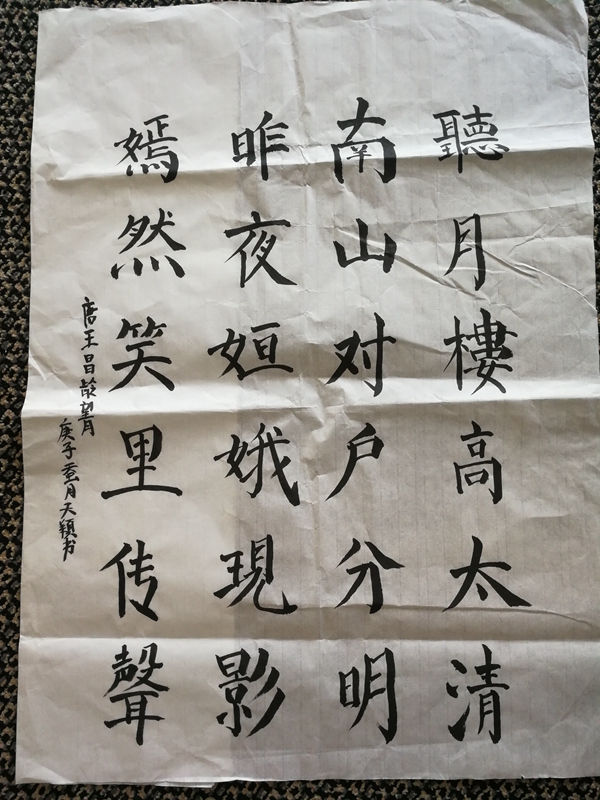 聽月樓高太清
南山对户分明
昨夜姮娥現影
嫣然笑里传聲
唐王昌龄望月
庚子壹月天穎书